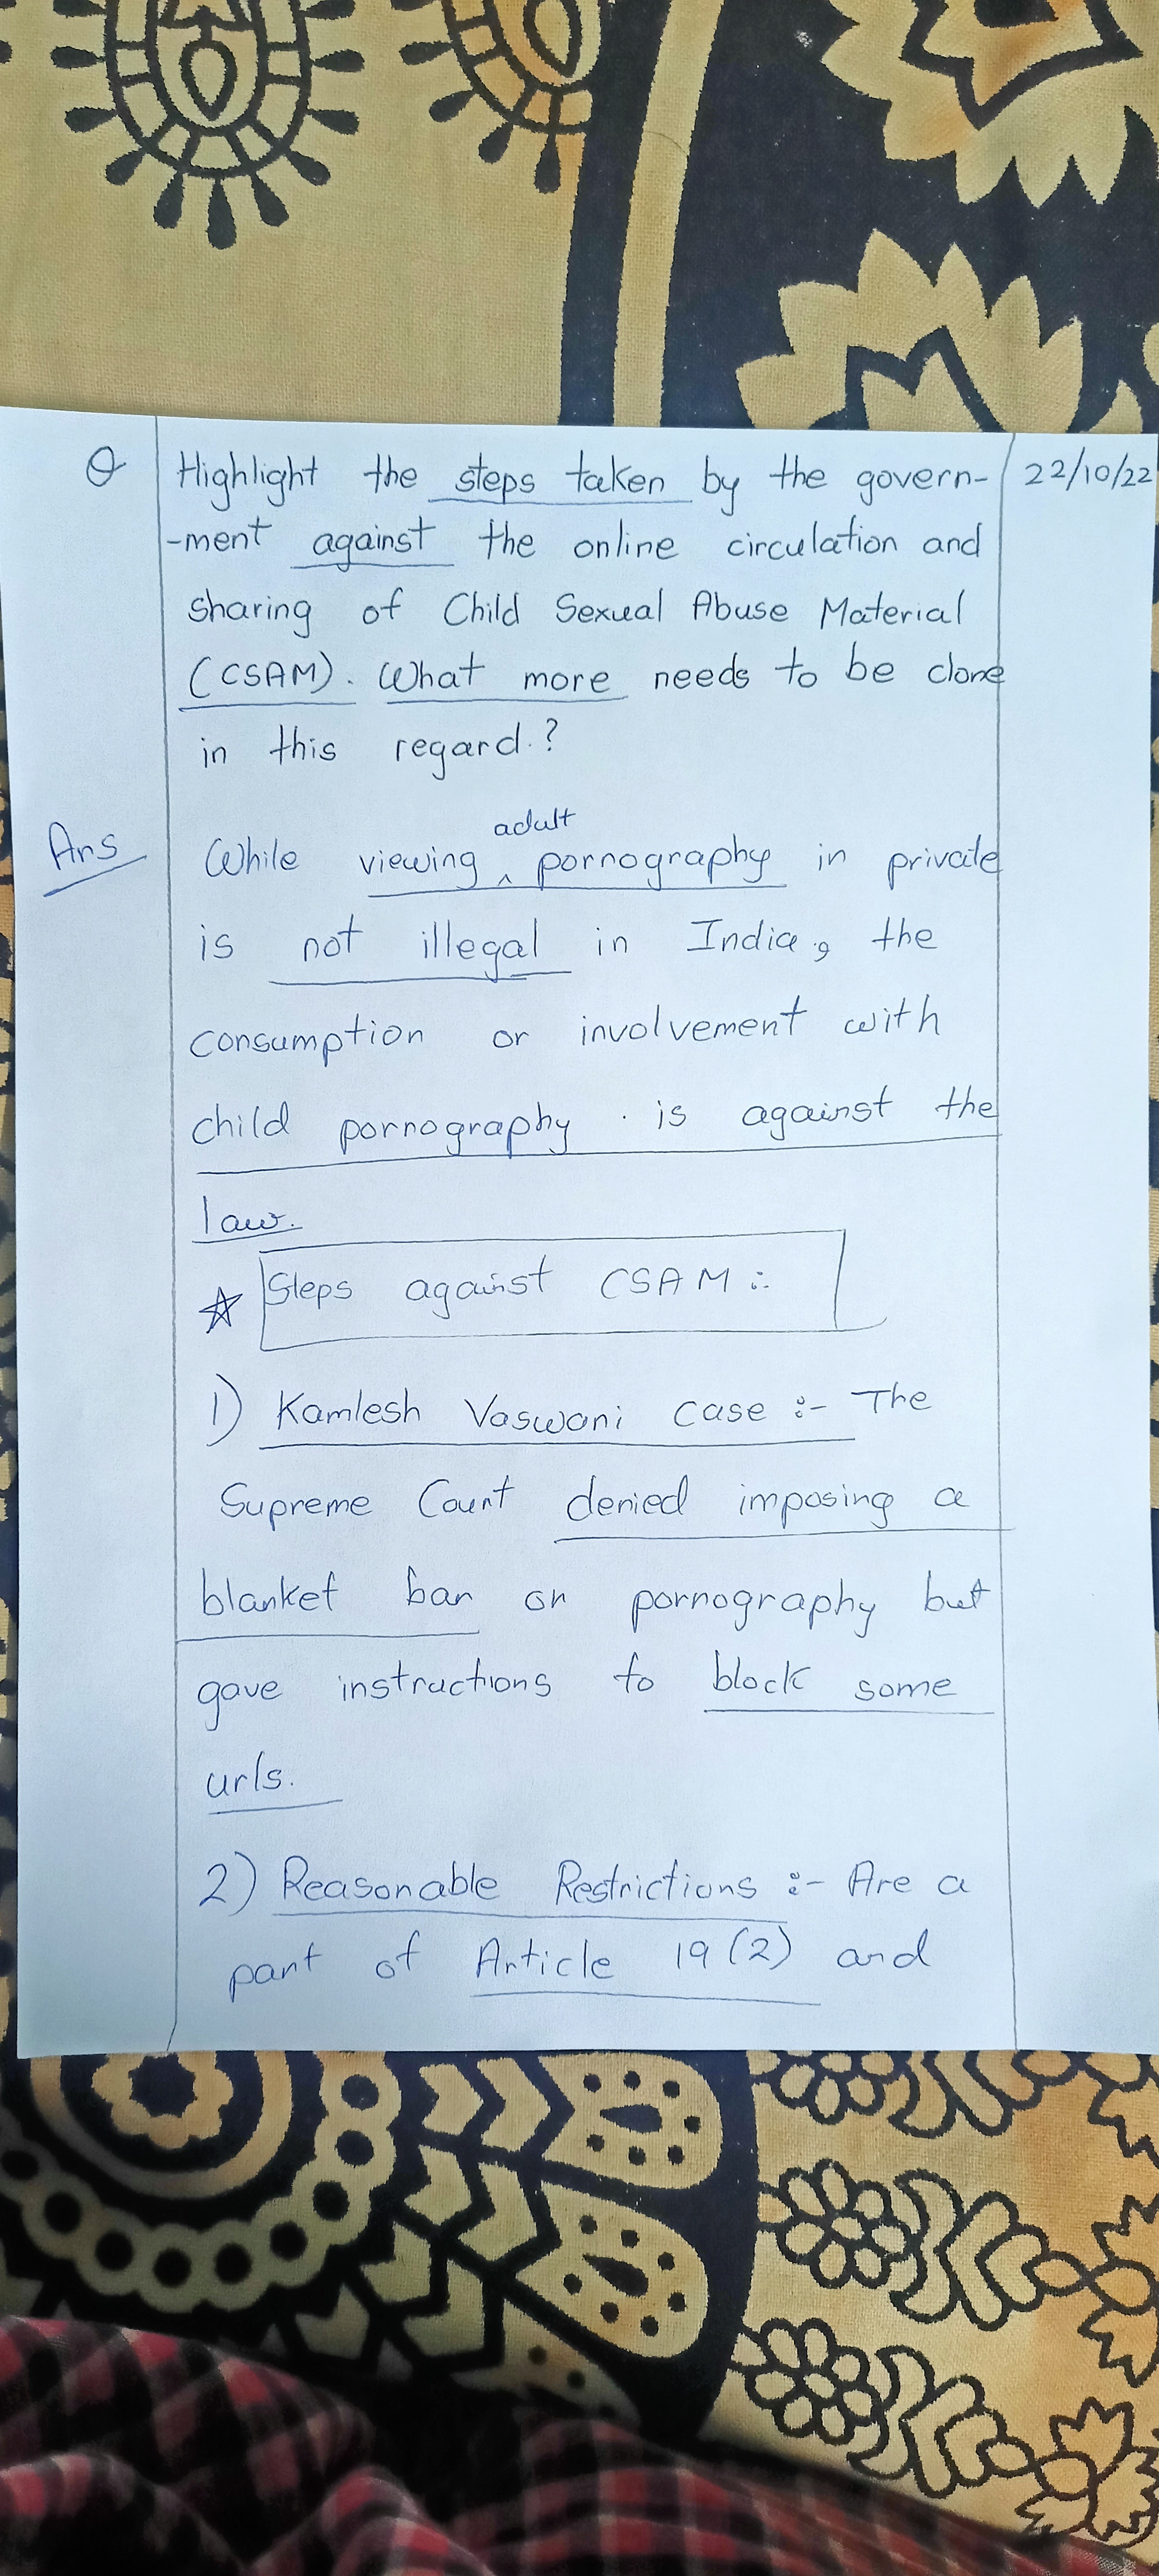 Q Highlight the steps taken by the govern- 22/10/22
-ment against the online circulation and
sharing of Child Sexual Abuse Material
(CSAM). What more needs to be done
in this regard.?
adult
Ans While viewing ^ pornography in private
is not illegal in India, the
consumption or involvement with
child pornography is against the
law.
☆ Steps against CSAM :-
1) Kamlesh Vaswani case :- The
Supreme Court denied imposing a
blanket ban on pornography but
gave instructions to block some
urls.
2) Reasonable Restrictions :- Are a
part of Article 19(2) and